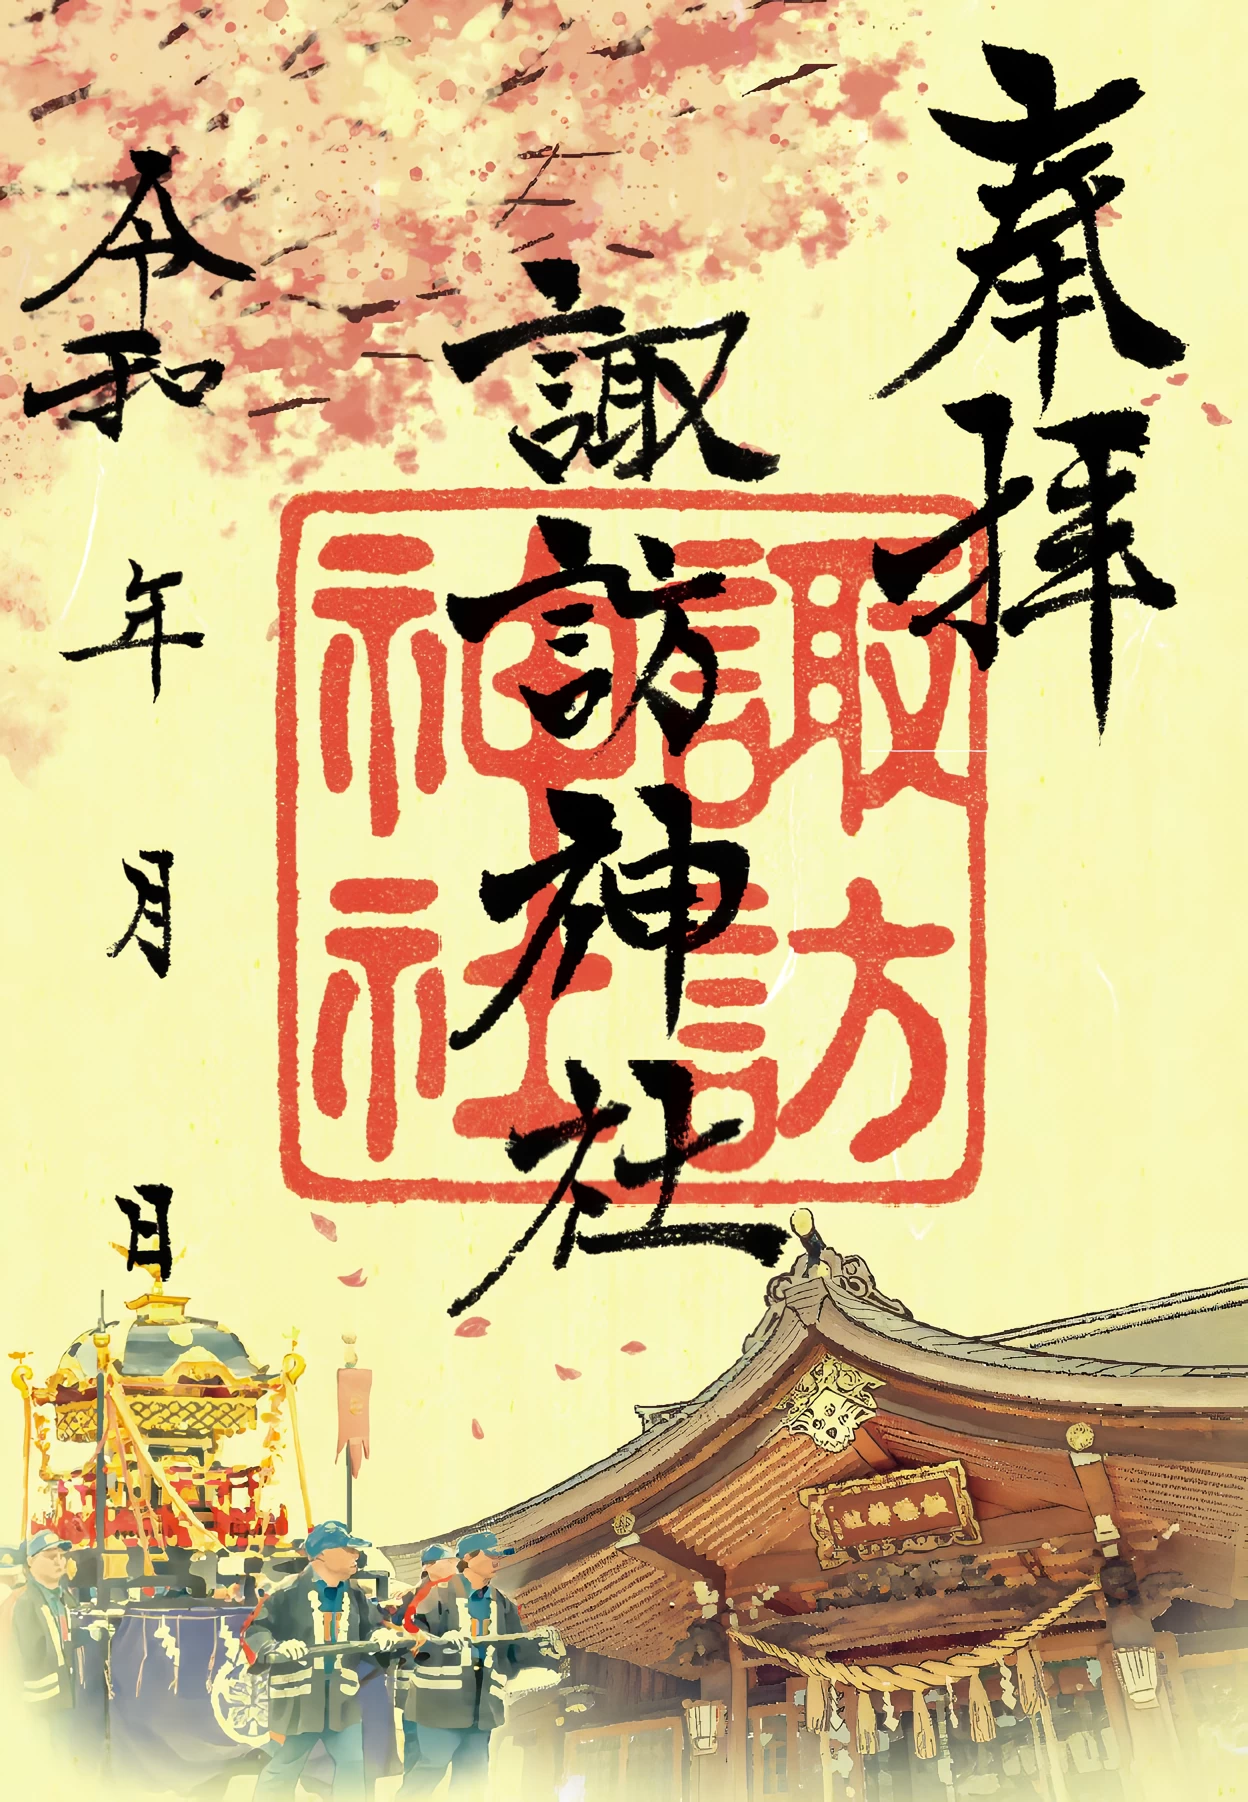 奉拝
諏訪神社
諏訪
神社
令和 年 月 日